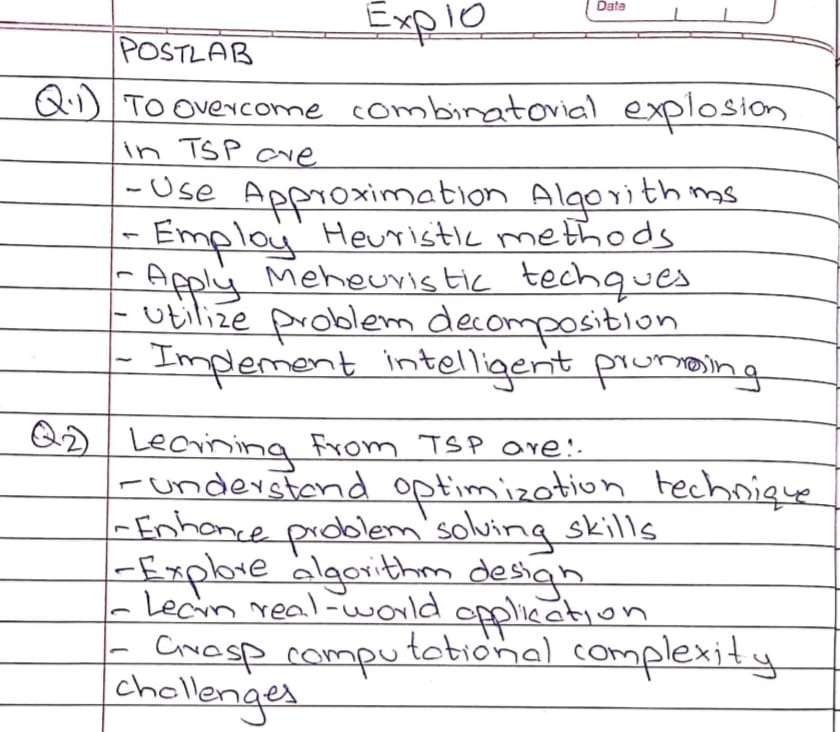 Exp 10
Data
POSTLAB
Q.1) To overcome combinatorial explosion
in TSP are
- Use Approximation Algorithms
- Employ Heuristic methods
- Apply Meheuristic techques
- Utilize problem decomposition
- Implement intelligent prunning
Q2) Learining From TSP are:.
- understand optimization technique
- Enhance problem solving skills
- Explore algorithm design
- Learn real-world application
- Grasp computational complexity
challenges